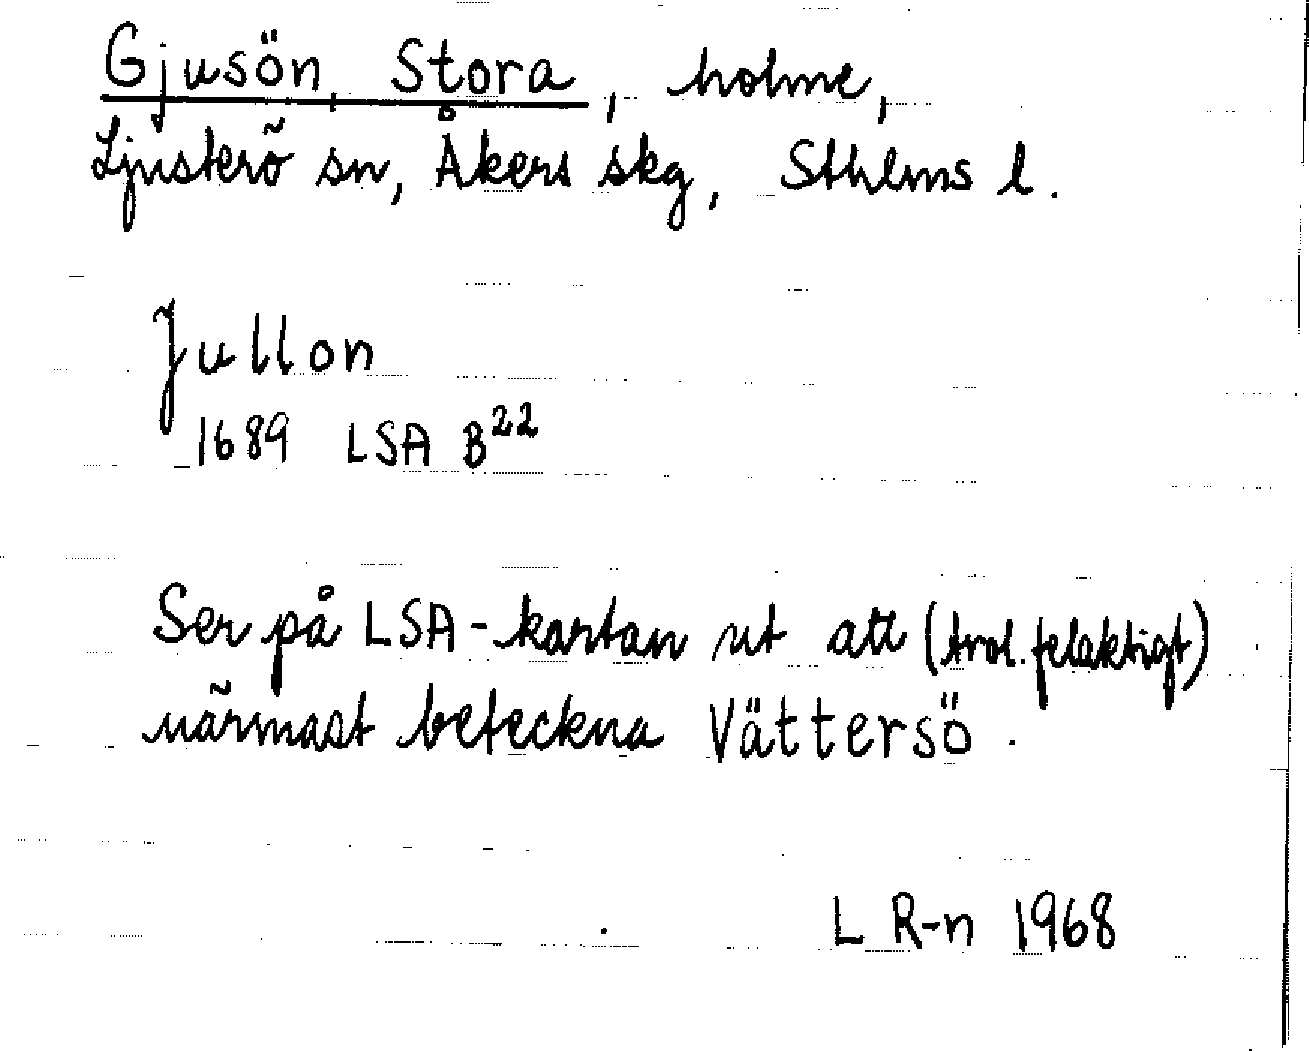 Gjusön, Stora, holme,
Ljusterö sn, Åkers skg, Sthlms l.
Jullon
1689 LSA B²²
Ser på LSA-kartan ut att (trol. felaktigt)
närmast beteckna Vättersö.
L R-n 1968